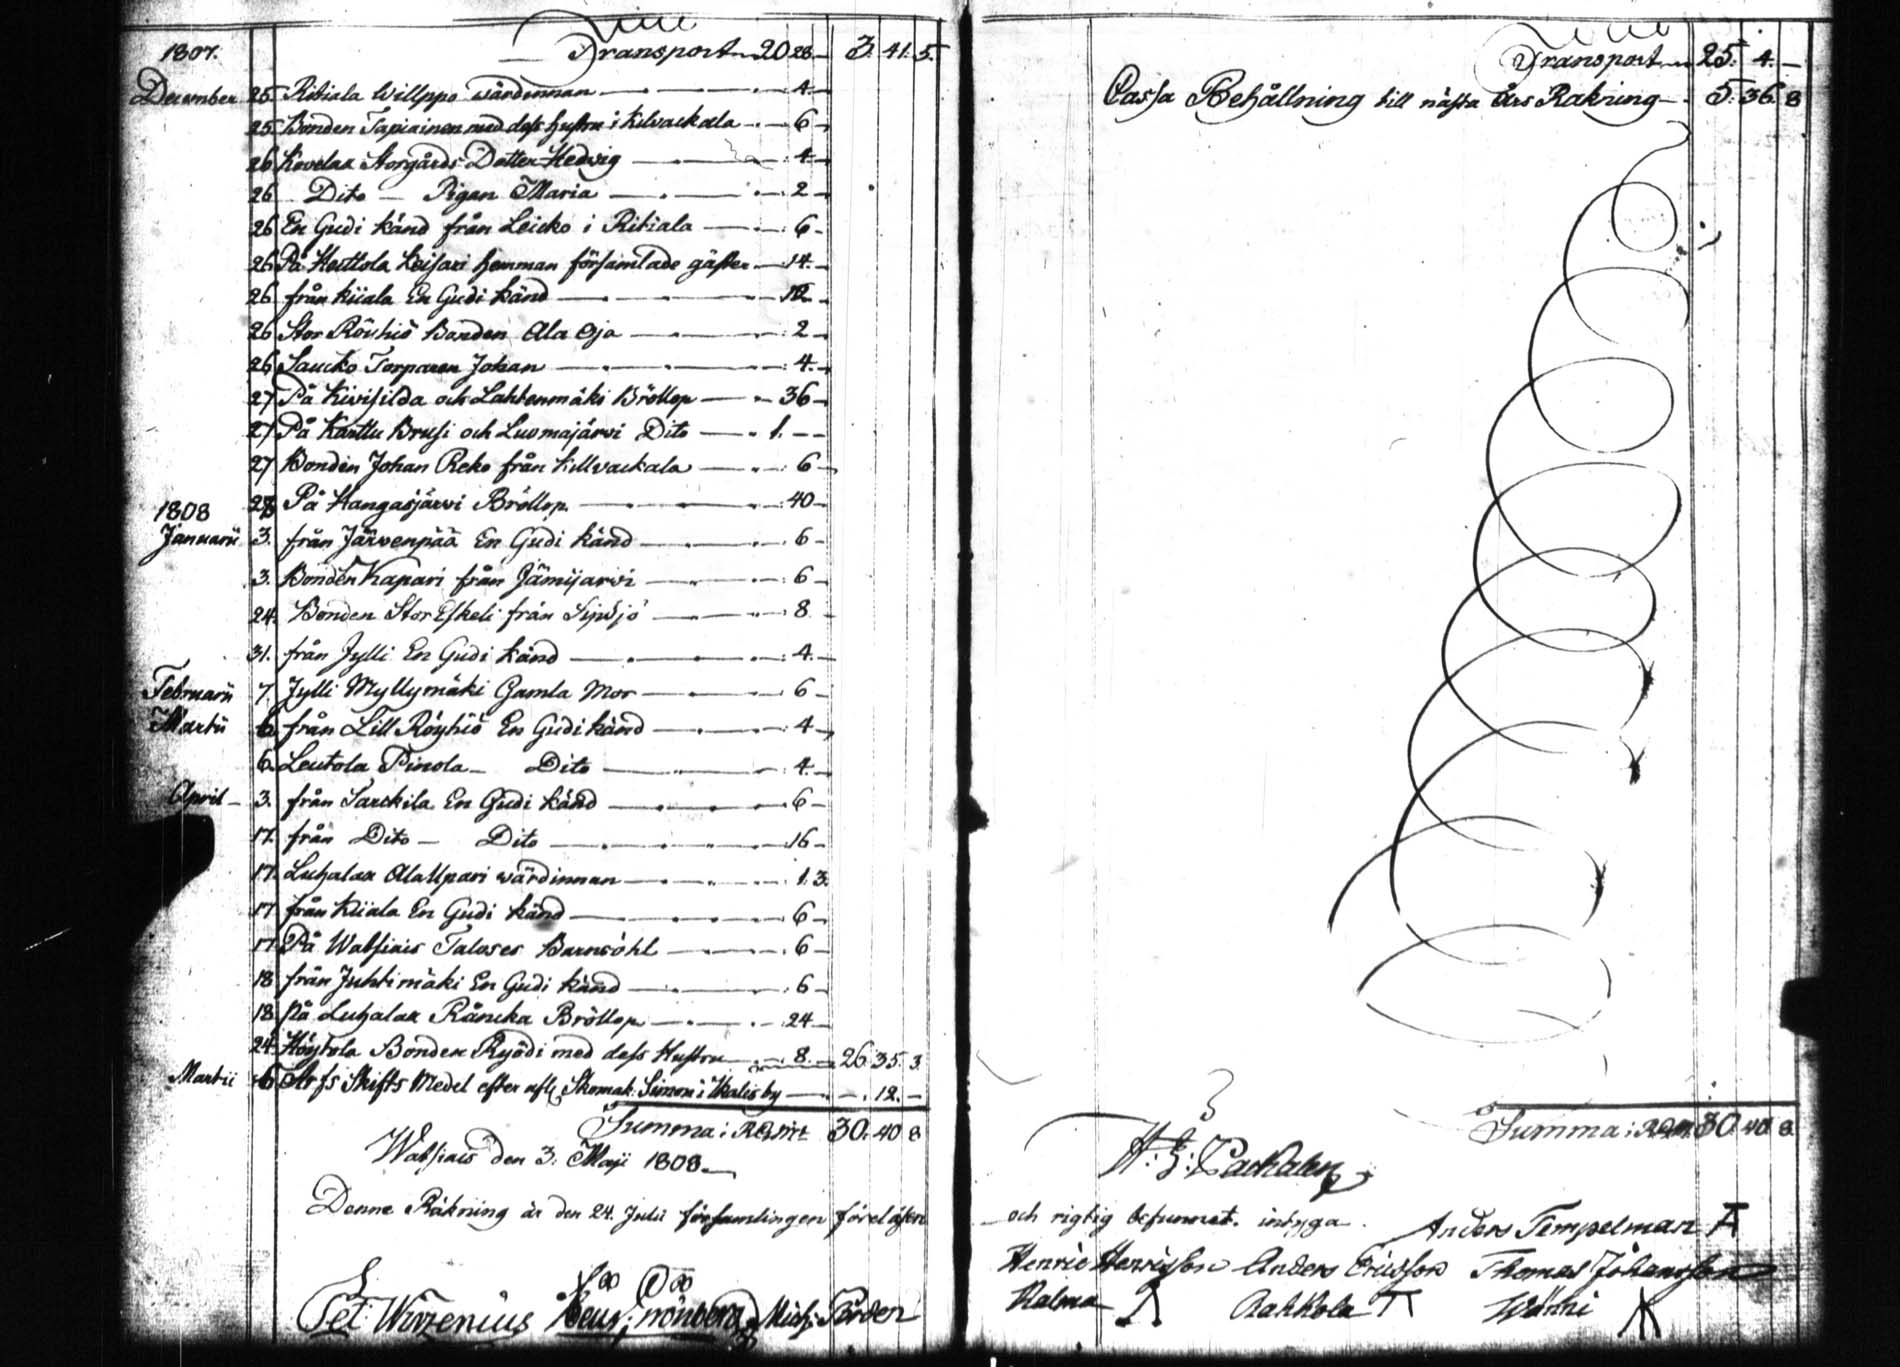 1807. Transport 20 28 — 3. 41. 5.
December 25. Ritiala Willppo wärdinnan — 4 —
25. Bonden Tapiainen med dess hustru i Kilvackala — 6 —
26 Kovelax Storgårds Dotter Hedvig — 4 —
26 Dito — Pigan Maria — 2 —
26 En Gudi känd från Leicko i Ritiala — 6 —
26 På Herttola Keisari hemman församlade gäster — 14 —
26 från Kiiala En Gudi känd — 12 —
26 Stor Röyhiö Bonden Ala Oja — 2 —
26 Saucko Torparen Johan — 4 —
27 På Kivisilda och Lahtenmäki Bröllop — 36 —
27 På Karttu Brusi och Luomajärvi Dito — 1. — —
27 Bonden Johan Reko från Killvackala — 6 —
28 På Kangasjärvi Bröllop — 40 —
1808
Januarii 3. från Järvenpää En Gudi känd — 6 —
3. Bonden Kapari från Jämijarvi — 6 —
24. Bonden Stor Eskeli från — 8
31. från Jylli En Gudi känd — 4 —
Februarii 7. Jylli Myllymäki Gamla Mor — 6 —
Martii 6. från Lill Röyhiö En Gudi känd — 4 —
6. Leutola Pinola — Dito — 4 —
April — 3. från Sarckila En Gudi känd — 6 —
17. från Dito — Dito — 16 —
17. Luhalax Ala Uppari wärdinnan — 1. 3.
17. från Kiiala En Gudi känd — 6 —
17. På Watsiais Taloses Barnsöhl — 6 —
18 från Juhtimäki En Gudi känd — 6 —
18. På Luhalax Råncka Bröllop — 24 —
24. Höytola Bonden Ryödi med dess Hustru — 8. — 26. 35. 3
Martii 6 Arfs Skifts Medel efter Skomak. Simon i Ikalis by — — . 12. —
Summa: R 30. 40 8
Watsiais den 3: Maji 1808.
Denne Räkning är den 24. Julii församlingen föreläsen
Transport 25. 4. —
Cassa Behållning till nästa års Räkning — 5. 36. 8
Summa: R 30. 40. 8.
och rigtig befunnet. intyga. Anders Tempelman
Henric Henricsson Anders Ericsson Thomas Johansson
Ralma Rahkola Wärni
Wirzenius